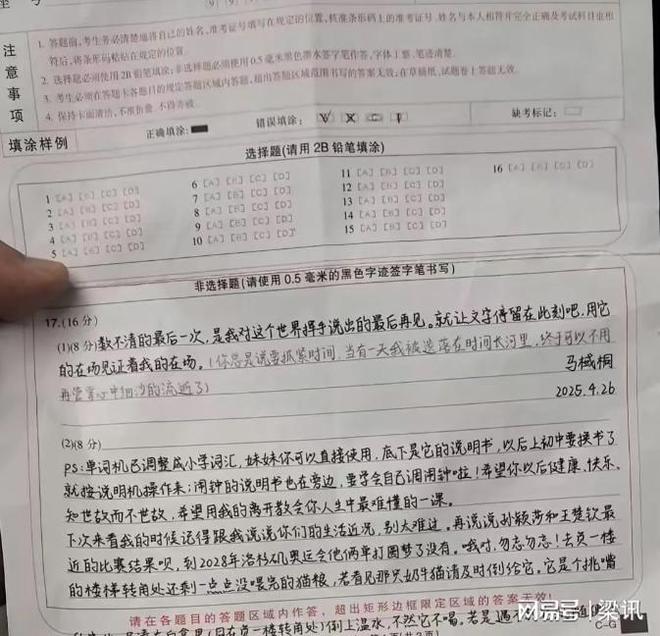 注意事项
1. 答题前,考生务必清楚地将自己的姓名、准考证号填写在规定的位置,核准条形码上的准考证号、姓名与本人相符并完全正确及考试科目也相
符后,将条形码粘贴在规定的位置。
2. 选择题必须使用2B铅笔填涂;非选择题必须使用0.5毫米黑色墨水签字笔作答,字体工整、笔迹清楚。
3. 考生必须在答题卡各题目的规定答题区域内答题,超出答题区域范围书写的答案无效;在草稿纸、试题卷上答题无效。
4. 保持卡面清洁,不准折叠、不得弄破。
填涂样例
正确填涂:
错误填涂:
缺考标记:
选择题(请用2B铅笔填涂)
1 [A] [B] [C] [D]
2 [A] [B] [C] [D]
3 [A] [B] [C] [D]
4 [A] [B] [C] [D]
5 [A] [B] [C] [D]
6 [A] [B] [C] [D]
7 [A] [B] [C] [D]
8 [A] [B] [C] [D]
9 [A] [B] [C] [D]
10 [A] [B] [C] [D]
11 [A] [B] [C] [D]
12 [A] [B] [C] [D]
13 [A] [B] [C] [D]
14 [A] [B] [C] [D]
15 [A] [B] [C] [D]
16 [A] [B] [C] [D]
非选择题(请使用0.5毫米的黑色字迹签字笔书写)
17.(16分)
(1)(8分)数不清的最后一次,是我对这个世界挥手说出的最后再见。就让文字停留在此刻吧,用它
的在场见证着我的在场。(你总是说要抓紧时间,当有一天我被遗落在时间长河里,终于可以不用
再管掌心中细沙的流逝了)
马棫桐
2025.4.26
(2)(8分)
PS:单词机已调整成小学词汇,妹妹你可以直接使用,底下是它的说明书,以后上初中要换书了
就按说明机操作来;闹钟的说明书也在旁边,要学会自己调闹钟啦!希望你以后健康、快乐、
知世故而不世故,希望用我的离开教会你人生中最难懂的一课。
下次来看我的时候记得跟我说说你们的生活近况,别太难过。再说说孙颖莎和王楚钦最
近的比赛结果呗,到2028年洛杉矶奥运会他俩单打圆梦了没有。哦对,勿忘勿忘!去负一楼
的楼梯转角处还剩一点点没喂完的猫粮,若看见那只奶牛猫请及时倒给它。它是个挑嘴
请在各题目的答题区域内作答,超出矩形边框限定区域的答案无效!
倒上温水,不然它不喝,若是遇不
搜狐号@梁讯